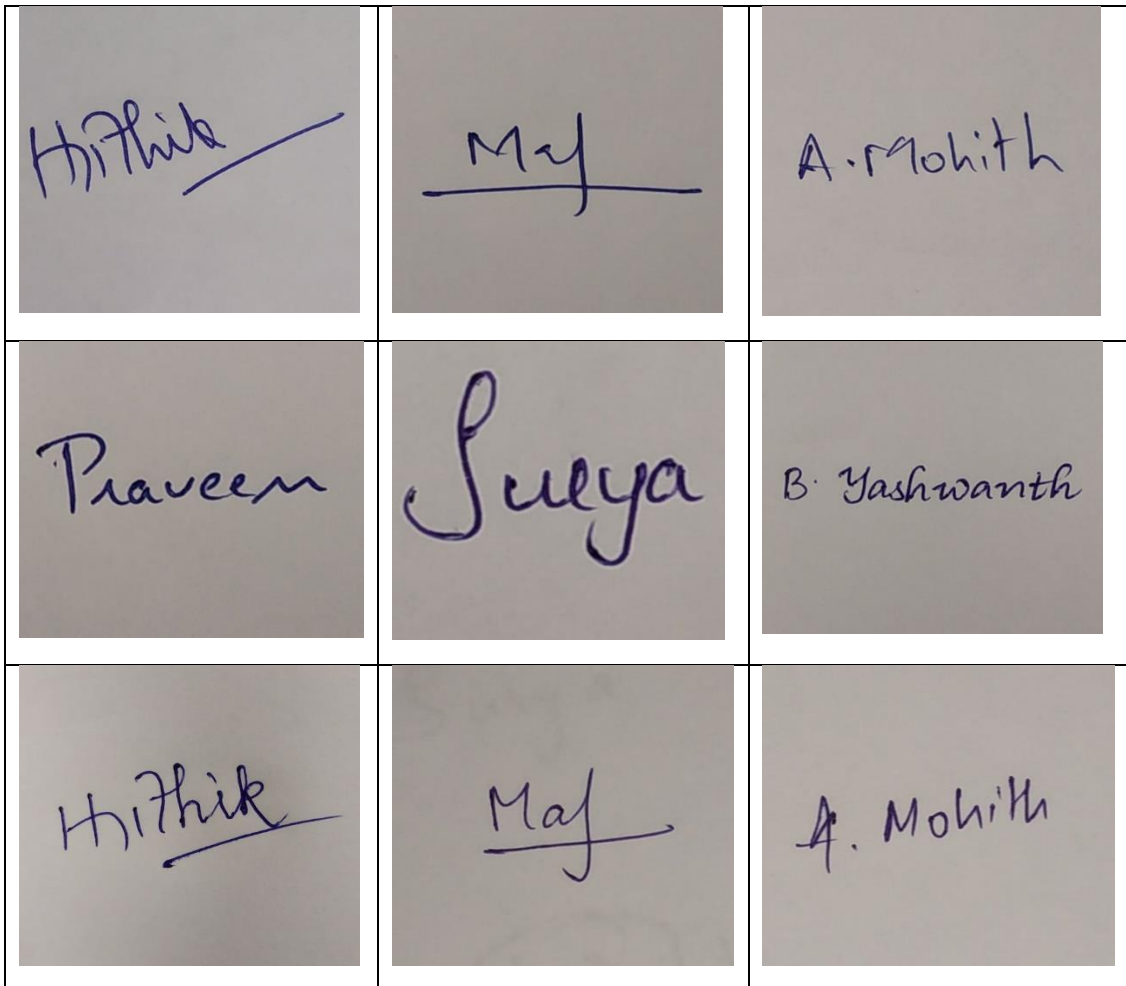 Hrithik
Maj
A. Mohith
Praveen
Surya
B. Yashwanth
Hrithik
Maj
A. Mohith